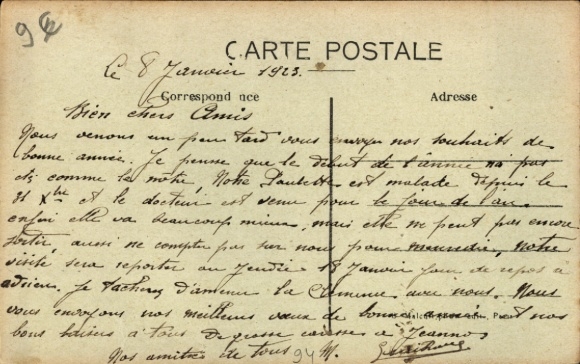 94
CARTE POSTALE
Le 8 Janvier 1923.
Correspond nce
Adresse
Bien chers Amis
Nous venons un peu tard vous envoyer nos souhaits de
bonne année. Je pense que le début de l'année n'a pas
été comme le nôtre, Notre Paulette est malade depuis le
31 Xbre et le docteur est venu pour le jour de l'an.
enfin elle va beaucoup mieux, mais elle ne peut pas encore
sortir, aussi ne compter pas sur nous pour mercredi, Notre
visite sera reporter au Jeudi 18 Janvier jour de repos à
adrien. Je tacherez d'amener la avec nous. Nous
vous envoyons nos meilleurs vœux de bonne année et nos
bons baisers à tous de grosse caresses à Jeannot
Nos amitiés de tous
94 M.